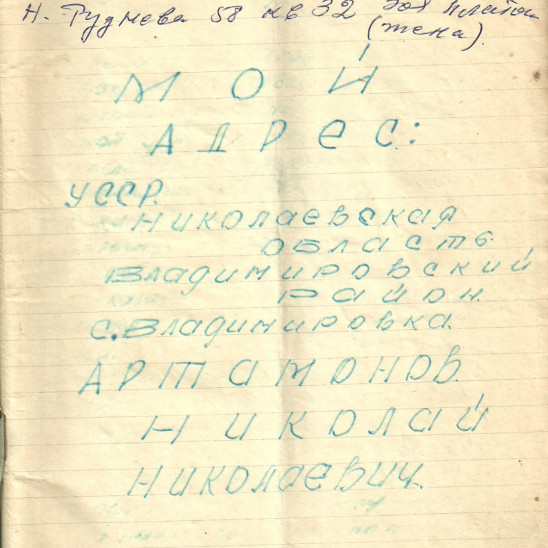 Н. Руднева 58 кв 32
(жена).
МОЙ
АДРЕС:
УССР.
НИКОЛАЕВСКАЯ
ОБЛАСТЬ.
ВЛАДИМИРОВСКИЙ
РАЙОН.
С. ВЛАДИМИРОВКА.
АРТАМОНОВ.
НИКОЛАЙ
НИКОЛАЕВИЧ.